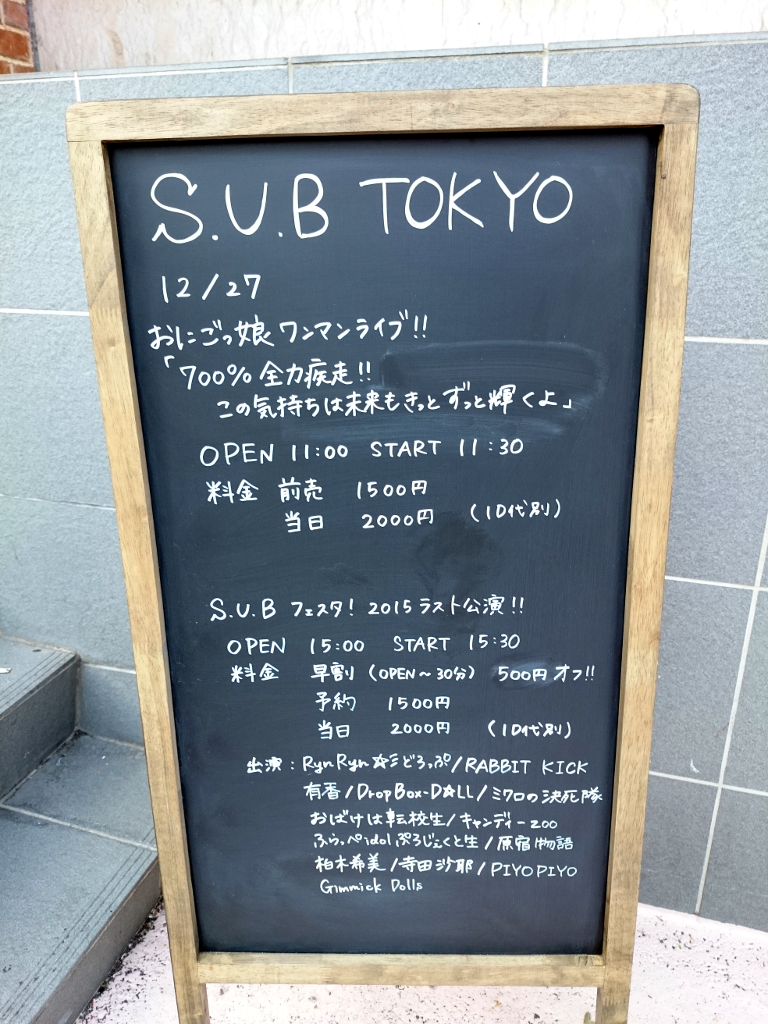 S.U.B TOKYO
12/27
おにごっ娘 ワンマンライブ!!
「700% 全力疾走!!
この気持ちは未来もきっとずっと輝くよ」
OPEN 11:00 START 11:30
料金 前売 1500円
当日 2000円 (1D代別)
S.U.B フェスタ! 2015 ラスト公演!!
OPEN 15:00 START 15:30
料金 早割 (OPEN～30分) 500円オフ!!
予約 1500円
当日 2000円 (1D代別)
出演:RynRyn☆彡どろっぷ/RABBIT KICK
有香/DropBox-D☆LL/ミクロの決死隊
おばけは転校生/キャンディー200
ふらっぺidolぷろじぇくと生/原宿物語
柏木希美/寺田沙耶/PIYOPIYO
Gimmick Dolls